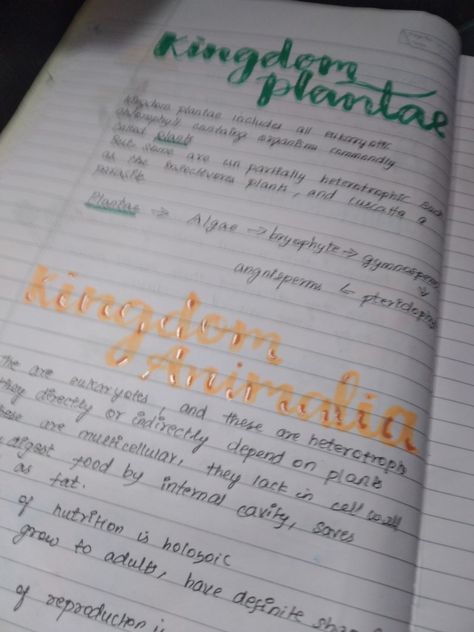 Kingdom
plantae
Kingdom plantae includes all eukaryotic
chlorophyll containing organism commonly
called plants
But some are un paritally heterotrophic such
as the insectivores plants, and cuscatta a
parasite
Plantae → Algae → bryophyte → gymnosperms
angnisperms ← pteridophytes
Kingdom
Animalia
The are eukaryotes, and these are heterotrophs
they directly or indirectly depend on plants
these are multicellular, they lack in cell wall
digest food by internal cavity, saves
as fat.
of nutrition is holozoic
grow to adults, have definite shape
of reproduction is